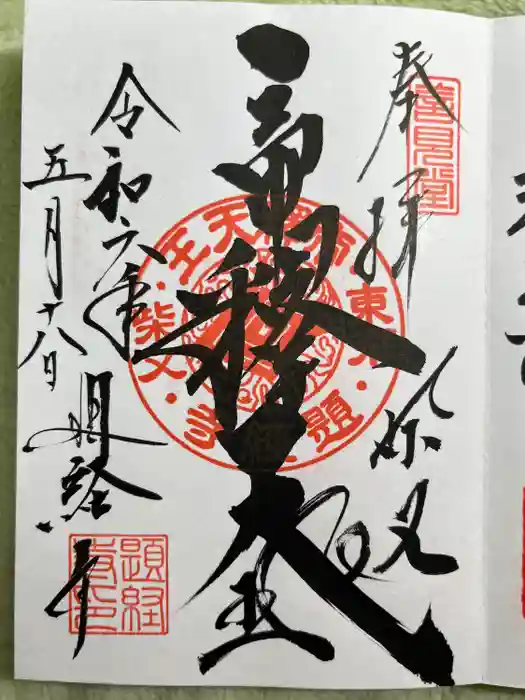 奉拝
柴又
帝釋天王
令和六年
五月十八日
題経寺
帝釋天王
東京
題経寺
柴又
題経
寺印